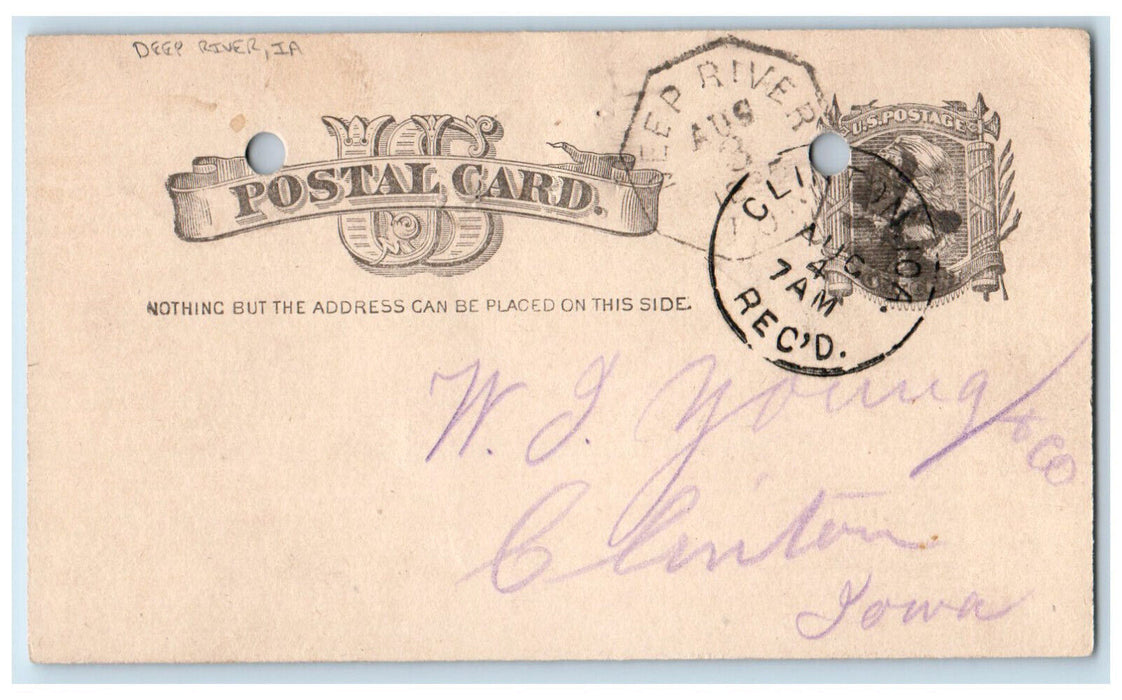 DEEP RIVER, IA
DEEP RIVER
AUG
3
U.S. POSTAGE
US
POSTAL CARD.
CLINTON, IOWA.
AUG
4
7AM
REC'D.
NOTHING BUT THE ADDRESS CAN BE PLACED ON THIS SIDE.
W. J. Young & Co
Clinton
Iowa